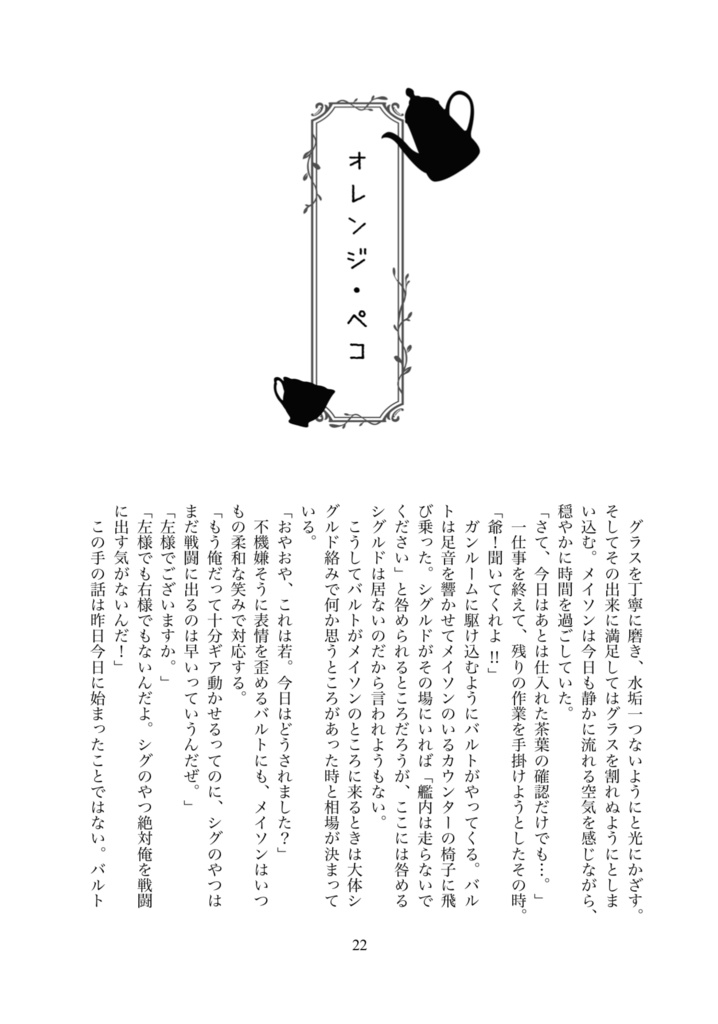 オレンジ・ペコ
グラスを丁寧に磨き、水垢一つないようにと光にかざす。
そしてその出来に満足してはグラスを割れぬようにとしま
い込む。メイソンは今日も静かに流れる空気を感じながら、
穏やかに時間を過ごしていた。
「さて、今日はあとは仕入れた茶葉の確認だけでも…。」
一仕事を終えて、残りの作業を手掛けようとしたその時。
「爺！聞いてくれよ‼」
ガンルームに駆け込むようにバルトがやってくる。バル
トは足音を響かせてメイソンのいるカウンターの椅子に飛
び乗った。シグルドがその場にいれば「艦内は走らないで
ください」と咎められるところだろうが、ここには咎める
シグルドは居ないのだから言われようもない。
こうしてバルトがメイソンのところに来るときは大体シ
グルド絡みで何か思うところがあった時と相場が決まって
いる。
「おやおや、これは若。今日はどうされました？」
不機嫌そうに表情を歪めるバルトにも、メイソンはいつ
もの柔和な笑みで対応する。
「もう俺だって十分ギア動かせるってのに、シグのやつは
まだ戦闘に出るのは早いっていうんだぜ。」
「左様でございますか。」
「左様でも右様でもないんだよ。シグのやつ絶対俺を戦闘
に出す気がないんだ！」
この手の話は昨日今日に始まったことではない。バルト
22